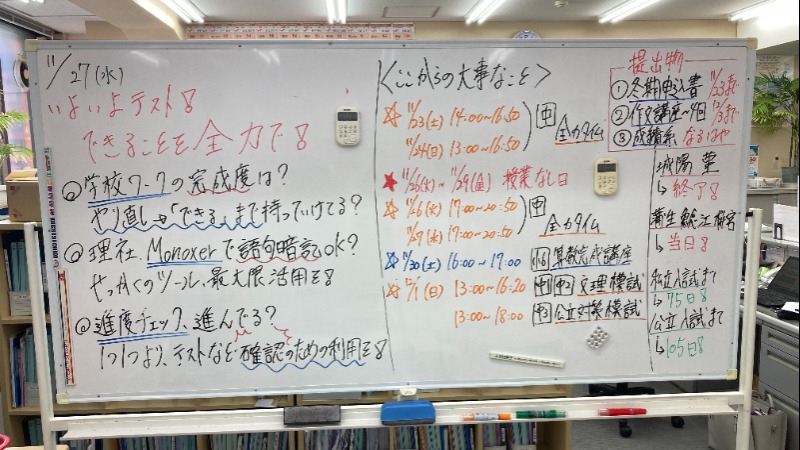 11/27(水)
いよいよテスト!
できることを全力で!
◎学校ワークの完成度は?
やり直し→「できる」まで持っていけてる?
◎理社、Monoxerで語句暗記OK?
せっかくのツール、最大限活用を!
◎進度チェック、進んでる?
1つ1つより、テストなど確認のための利用を!
<ここからの大事なこと>
☆11/23(土) 14:00~16:50
11/24(日) 13:00~16:50
中 全力タイム
★11/26(火)~11/29(金) 授業なし日
☆11/26(火) 17:00~20:50
11/27(水) 17:00~20:50
中 全力タイム
☆11/30(土) 16:00~17:00 小6 算数完成講座
☆12/1(日) 13:00~16:20 中1 中2 文理模試
13:00~18:00 中3 公立対策模試
提出物
①冬期申込書 11/23まで
②作文講座~4回 12/3まで
③成績系 なるはや
城陽 葉
↳終了!
蒲生
↳当日!
私立入試まで
↳75日!
公立入試まで
↳105日!